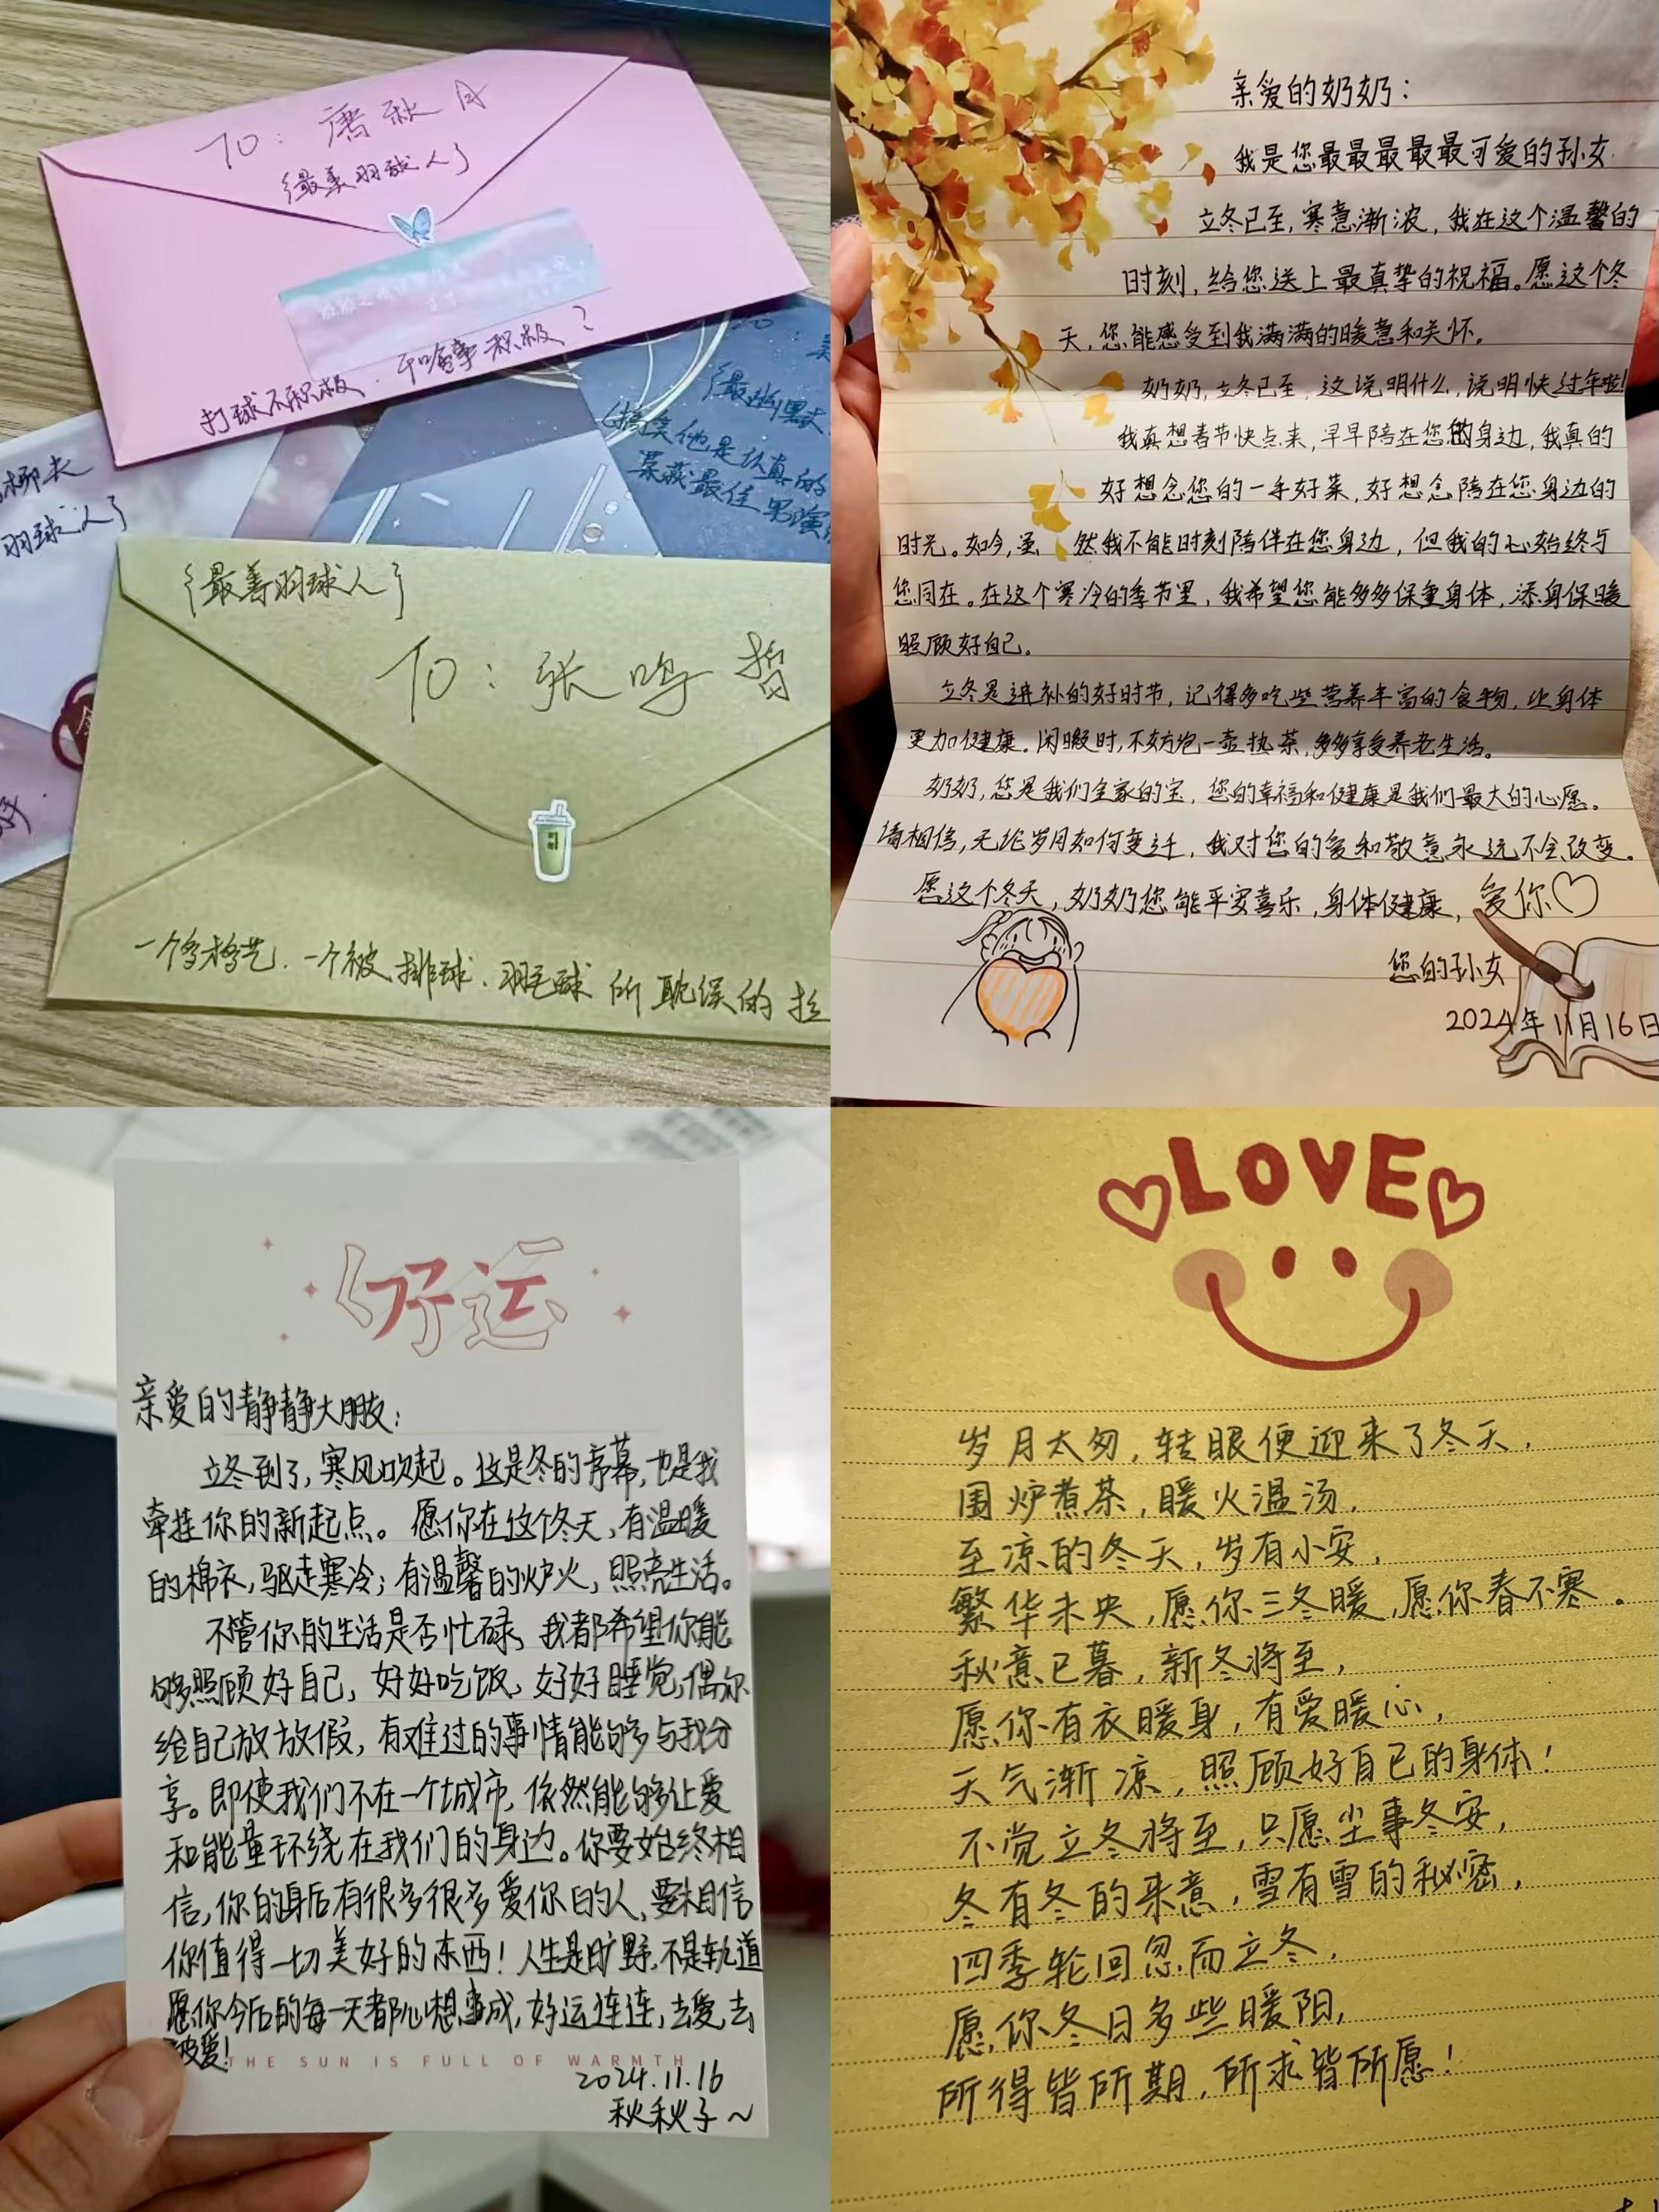 TO：唐秋月
{最美羽球人}
打球不积极．干啥事积极？
羽球人}
{最幽默
(搞笑他是认真的
最佳男演
{最善羽球人}
TO：张鸣哲
一个多才多艺．一个被排球．羽毛球所耽误的
亲爱的奶奶：
我是您最最最最最可爱的孙女
立冬已至，寒意渐浓，我在这个温馨的
时刻，给您送上最真挚的祝福。愿这个冬
天，您能感受到我满满的暖意和关怀。
奶奶，立冬已至，这说明什么，说明快过年啦！
我真想春节快点来，早早陪在您的身边，我真的
好想念您的一手好菜，好想念陪在您身边的
时光。如今，虽然我不能时刻陪伴在您身边，但我的心始终与
您同在。在这个寒冷的季节里，我希望您能多多保重身体，添身保暖
照顾好自己。
立冬是进补的好时节，记得多吃些营养丰富的食物，让身体
更加健康。闲暇时，不妨泡一壶热茶，多多享受养老生活。
奶奶，您是我们全家的宝，您的幸福和健康是我们最大的心愿。
请相信，无论岁月如何变迁，我对您的爱和敬意永远不会改变。
愿这个冬天，奶奶您能平安喜乐，身体健康，爱你♡
您的孙女
2024年11月16日
好运
亲爱的静静大朋友：
立冬到了，寒风吹起。这是冬的序幕，也是我
牵挂你的新起点。愿你在这个冬天，有温暖
的棉衣，驱走寒冷；有温馨的炉火，照亮生活。
不管你的生活是否忙碌，我都希望你能
够照顾好自己，好好吃饭，好好睡觉，偶尔
给自己放放假，有难过的事情能够与我分
享。即使我们不在一个城市，依然能够让爱
和能量环绕在我们的身边。你要始终相
信，你的身后有很多很多爱你的人，要相信
你值得一切美好的东西！人生是旷野，不是轨道
愿你今后的每一天都心想事成，好运连连，去爱，去
被爱！
THE SUN IS FULL OF WARMTH
2024.11.16
秋秋子~
LOVE
岁月太匆，转眼便迎来了冬天，
围炉煮茶，暖火温汤，
至凉的冬天，岁有小安，
繁华未央，愿你三冬暖，愿你春不寒。
秋意已暮，新冬将至，
愿你有衣暖身，有爱暖心，
天气渐凉，照顾好自己的身体！
不觉立冬将至，只愿尘事冬安，
冬有冬的来意，雪有雪的秘密，
四季轮回忽而立冬，
愿你冬日多些暖阳，
所得皆所期，所求皆所愿！